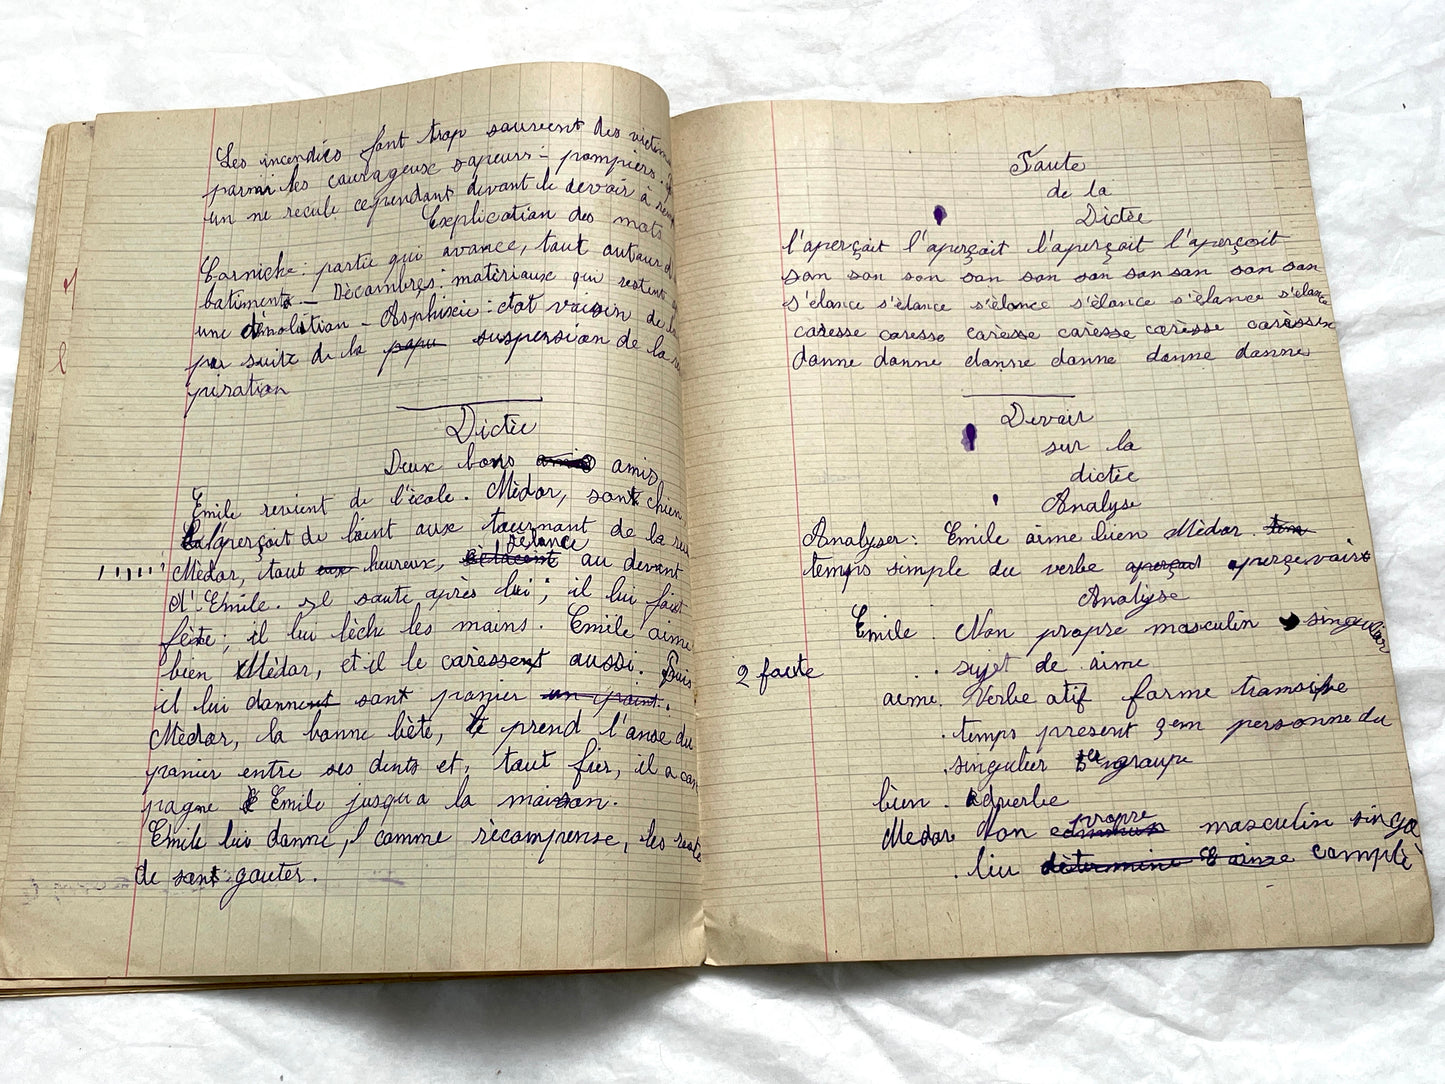 Les incendies font trop souvent des victim
parmi les courageux sapeurs-pompiers.
un ne recule cependant devant le devoir à rem
Explication des mots
Corniche: partie qui avance, tout autour d
batiments. — Décombres: matériaux qui restent
une démolition — Asphixie: état voisin de la
par suite de la suspension de la res
piration
Dictée
Deux bons amis amis
Emile revient de l'école. Mèdor, sont chien
l'aperçoit de loint aux tournant de la rue
s'élance
Mèdar, tout heureux, au devant
d'Emile. Il saute après lui; il lui fait
fète; il lui lèche les mains. Emile aime
bien Mèdar, et il le caressent aussi. Puis
il lui donnent sont panier un point.
Mèdor, la bonne bète, le prend l'anse du
panier entre ses dents et, tout fier, il a com
pagne Emile jusqu'a la maison.
Emile lui donne, comme rècompense, les reste
de sont gouter.
Faute
de la
Dictée
l'aperçoit l'aperçoit l'aperçoit l'aperçoit
son son son son son son son son son son
s'élance s'élance s'élance s'élance s'élance s'élance
caresse caresse caresse caresse caresse caresse
donne donne donne donne donne donne
Devoir
sur la
dictée
Analyse
Analyser: Emile aime bien Mèdar. tem
temps simple du verbe aperçoit aperçevoir
Analyse
Emile. Non propre masculin singulier
2 faute
. sujet de aime
aime. Verbe atif forme transitive
. temps present 3em personne du
. singulier groupe
bien. adverbe
propre
Medor Non commun masculin singu
. lier dètermine E aime complè